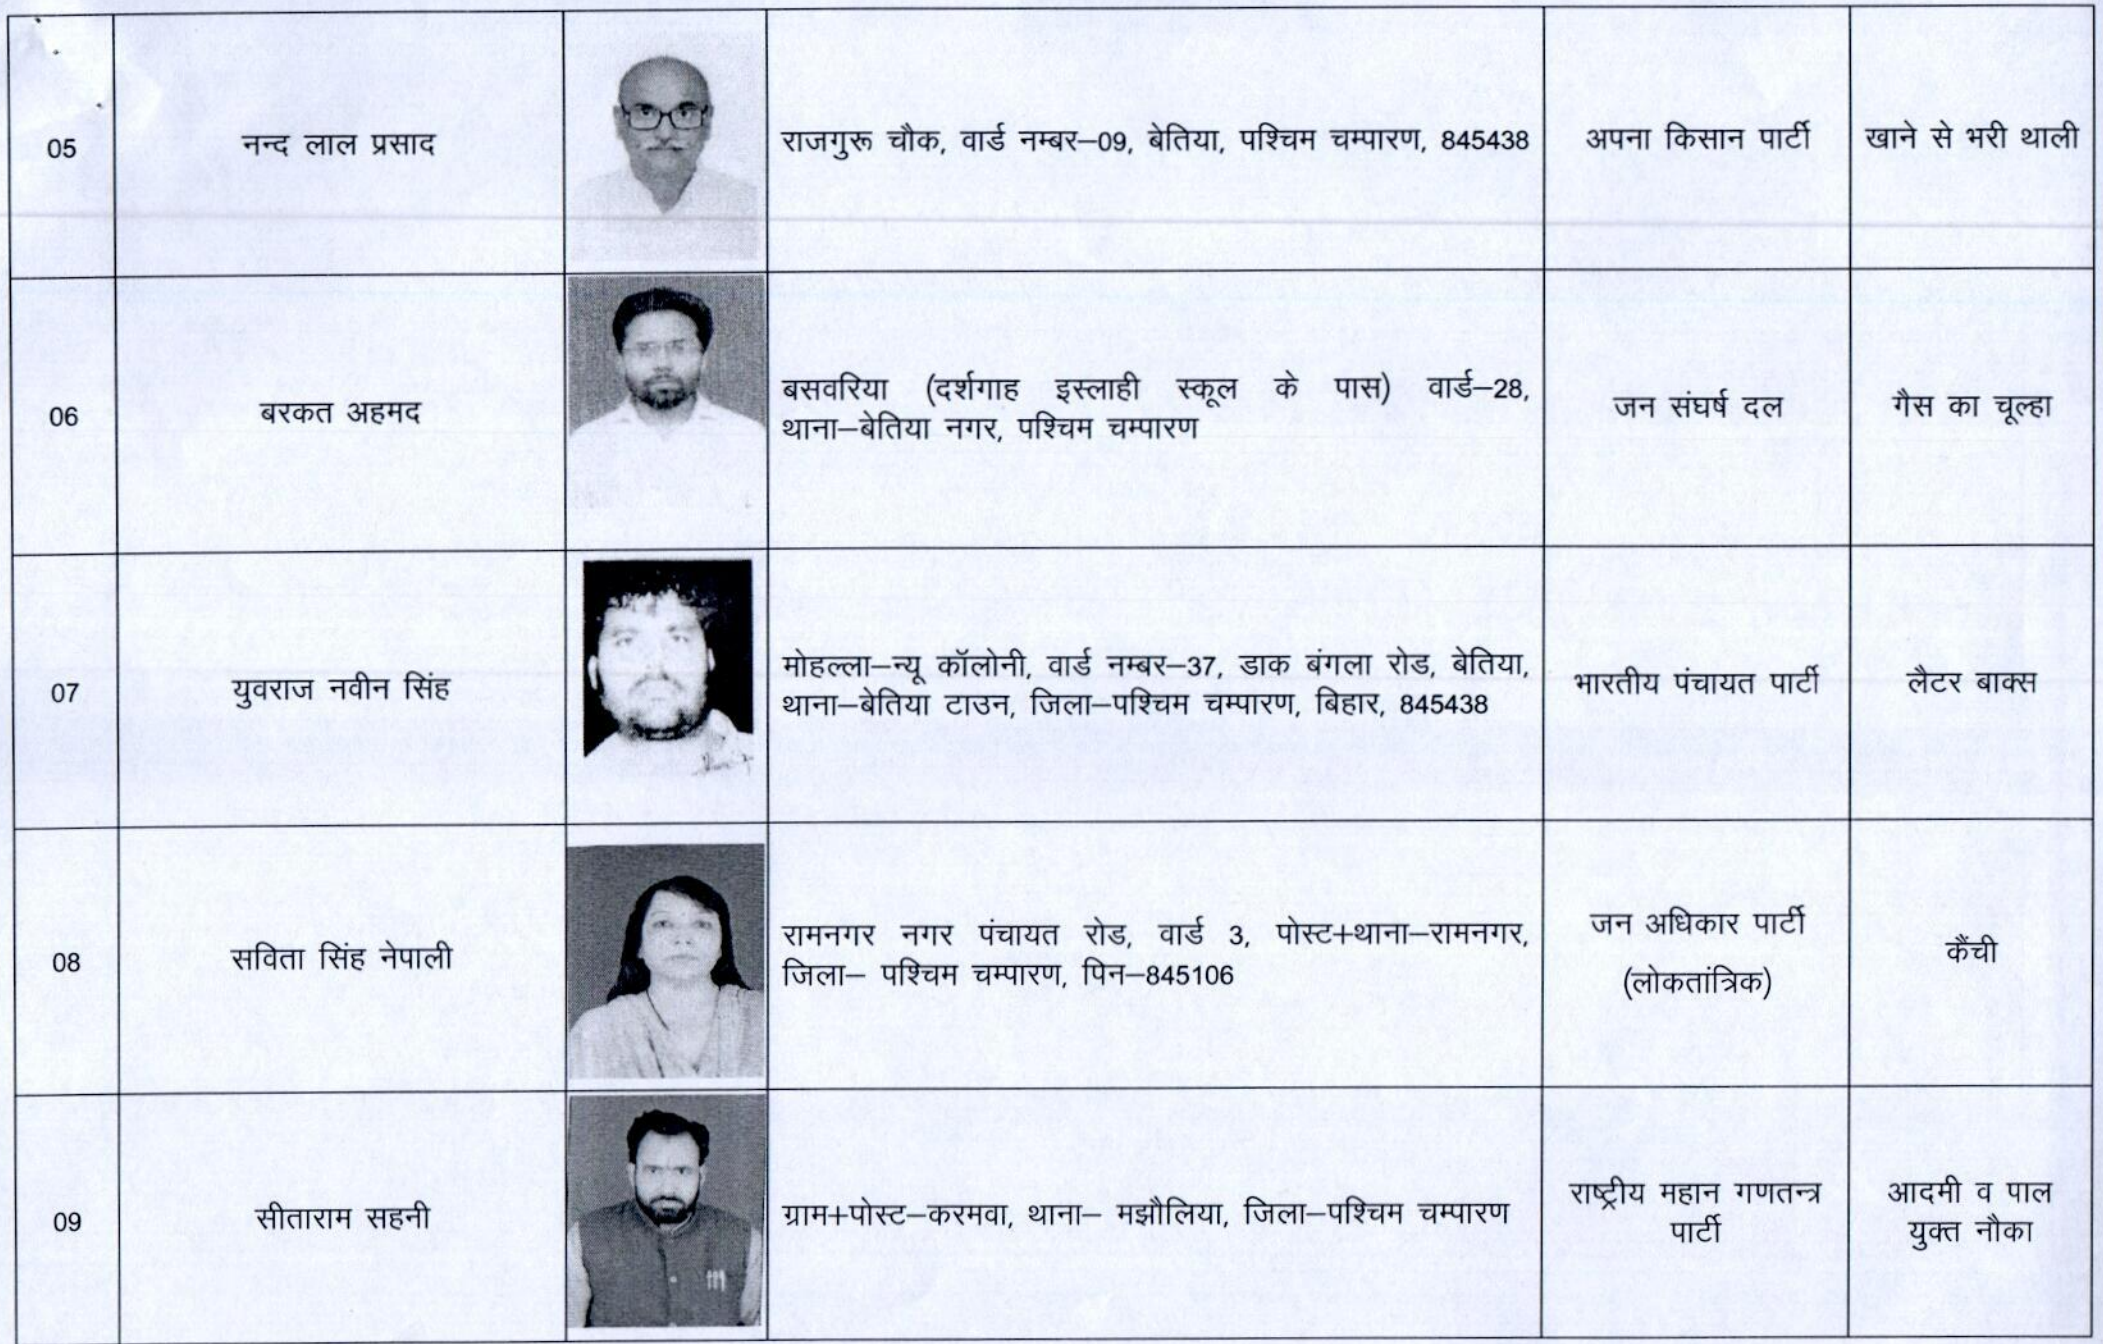 05
नन्द लाल प्रसाद
राजगुरू चौक, वार्ड नम्बर–09, बेतिया, पश्चिम चम्पारण, 845438
अपना किसान पार्टी
खाने से भरी थाली
06
बरकत अहमद
बसवरिया (दर्शगाह इस्लाही स्कूल के पास) वार्ड–28,
थाना–बेतिया नगर, पश्चिम चम्पारण
जन संघर्ष दल
गैस का चूल्हा
07
युवराज नवीन सिंह
मोहल्ला–न्यू कॉलोनी, वार्ड नम्बर–37, डाक बंगला रोड, बेतिया,
थाना–बेतिया टाउन, जिला–पश्चिम चम्पारण, बिहार, 845438
भारतीय पंचायत पार्टी
लैटर बाक्स
08
सविता सिंह नेपाली
रामनगर नगर पंचायत रोड, वार्ड 3, पोस्ट+थाना–रामनगर,
जिला– पश्चिम चम्पारण, पिन–845106
जन अधिकार पार्टी
(लोकतांत्रिक)
कैंची
09
सीताराम सहनी
ग्राम+पोस्ट–करमवा, थाना– मझौलिया, जिला–पश्चिम चम्पारण
राष्ट्रीय महान गणतन्त्र
पार्टी
आदमी व पाल
युक्त नौका